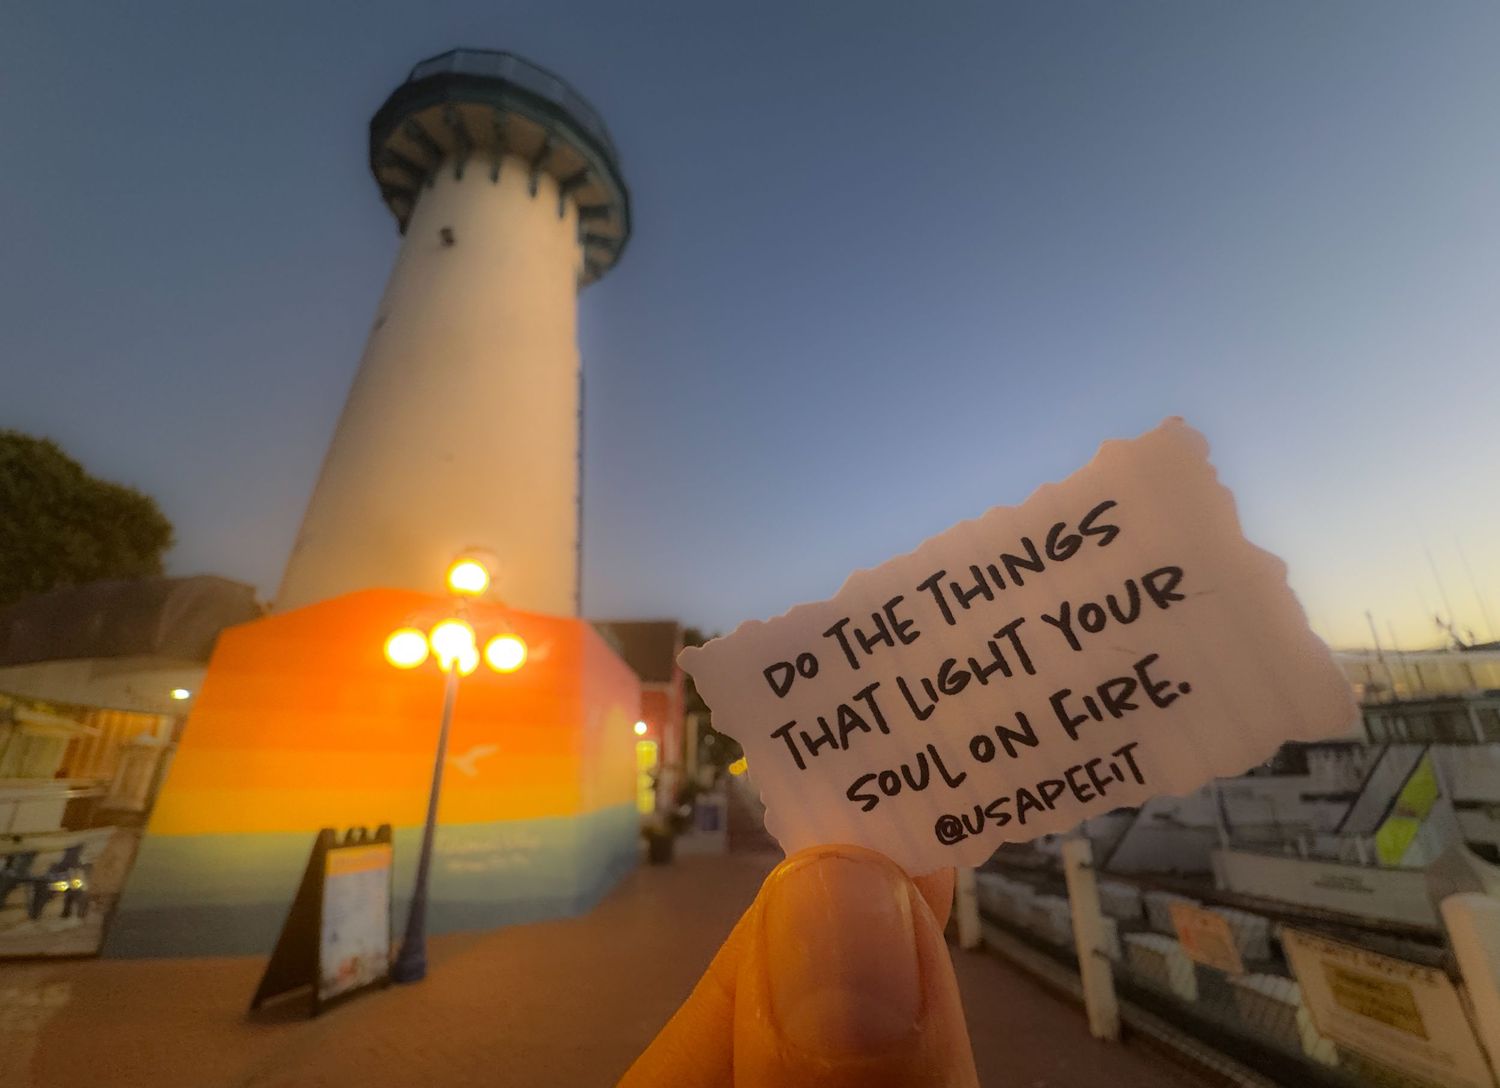 DO THE THINGS
THAT LIGHT YOUR
SOUL ON FIRE.
@USAPEFIT